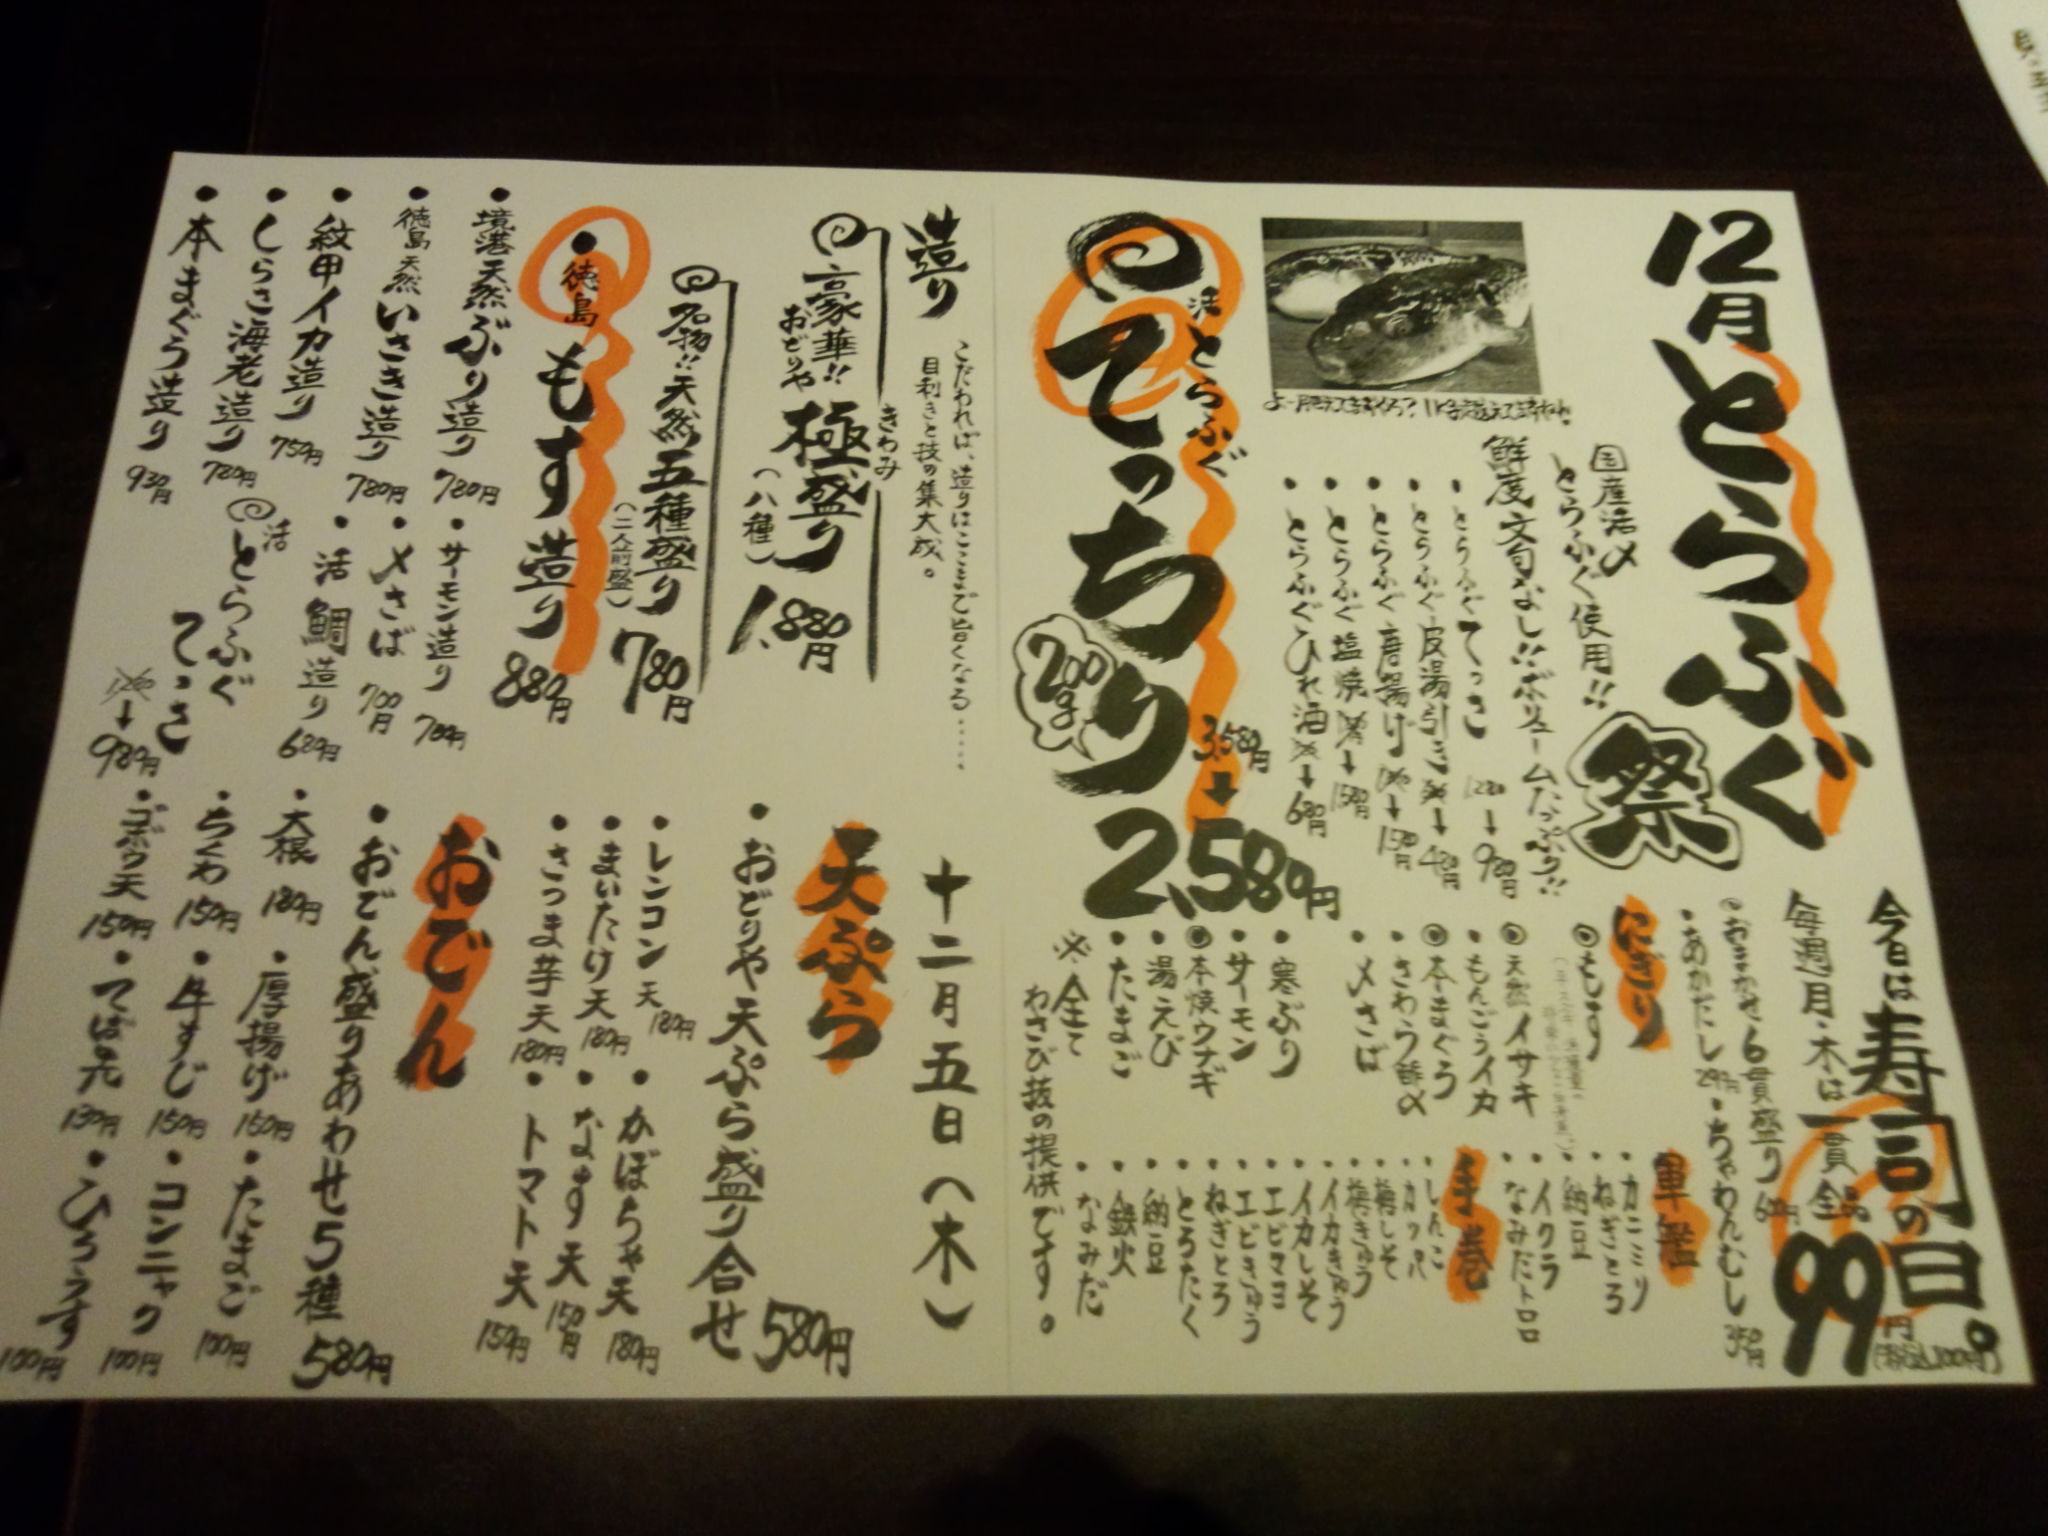 12月とらふぐ祭
国産活〆
とらふぐ使用!!
鮮度文句なし!!ボリュームたっぷり!!
・とらふぐてっさ → 980円
・とらふぐ皮湯引き → 480円
・とらふぐ唐揚げ
・とらふぐ塩焼
・とらふぐひれ酒 → 680円
活とらふぐ
てっちり
200g
3,580円→2,580円
今日は寿司の日。
毎週月・木は一貫全品
99円(税込100円)
おまかせ6貫盛り 600円
・あかだし 299円
・ちゃわんむし 350円
にぎり
◎もす
◎天然イサキ
・もんごうイカ
◎本まぐろ
・さわら鮮〆
・〆さば
・寒ぶり
・サーモン
◎本焼ウナギ
・湯えび
・たまご
※全て
わさび抜の提供です。
軍艦
・カニミソ
・ねぎとろ
・納豆
・イクラ
・なみだトロロ
手巻
・しんこ
・カッパ
・梅しそ
・梅きゅう
・イカきゅう
・イカしそ
・エビマヨ
・エビきゅう
・ねぎとろ
・とろたく
・納豆
・鉄火
・なみだ
造り
こだわれば、造りはここまで旨くなる……
目利きと技の集大成。
豪華!!おどりや
極盛り
きわみ
(八種)
1,880円
名物!!天然五種盛り
(二人前盛)
780円
・徳島もす造り 880円
・境港天然ぶり造り 780円
・徳島天然いさき造り 780円
・紋甲イカ造り 750円
・しらさ海老造り 780円
・本まぐろ造り 930円
・サーモン造り 700円
・〆さば 700円
・活鯛造り 680円
活とらふぐ
てっさ
→980円
十二月五日(木)
天ぷら
・おどりや天ぷら盛り合せ 580円
・レンコン天 180円
・まいたけ天 180円
・さつま芋天 180円
・かぼちゃ天 180円
・なす天 150円
・トマト天 150円
おでん
・おでん盛りあわせ5種 580円
・大根 180円
・ちくわ 150円
・ゴボウ天 150円
・厚揚げ 150円
・牛すじ 150円
・てば元 130円
・たまご 100円
・コンニャク 100円
・ひろうす 100円